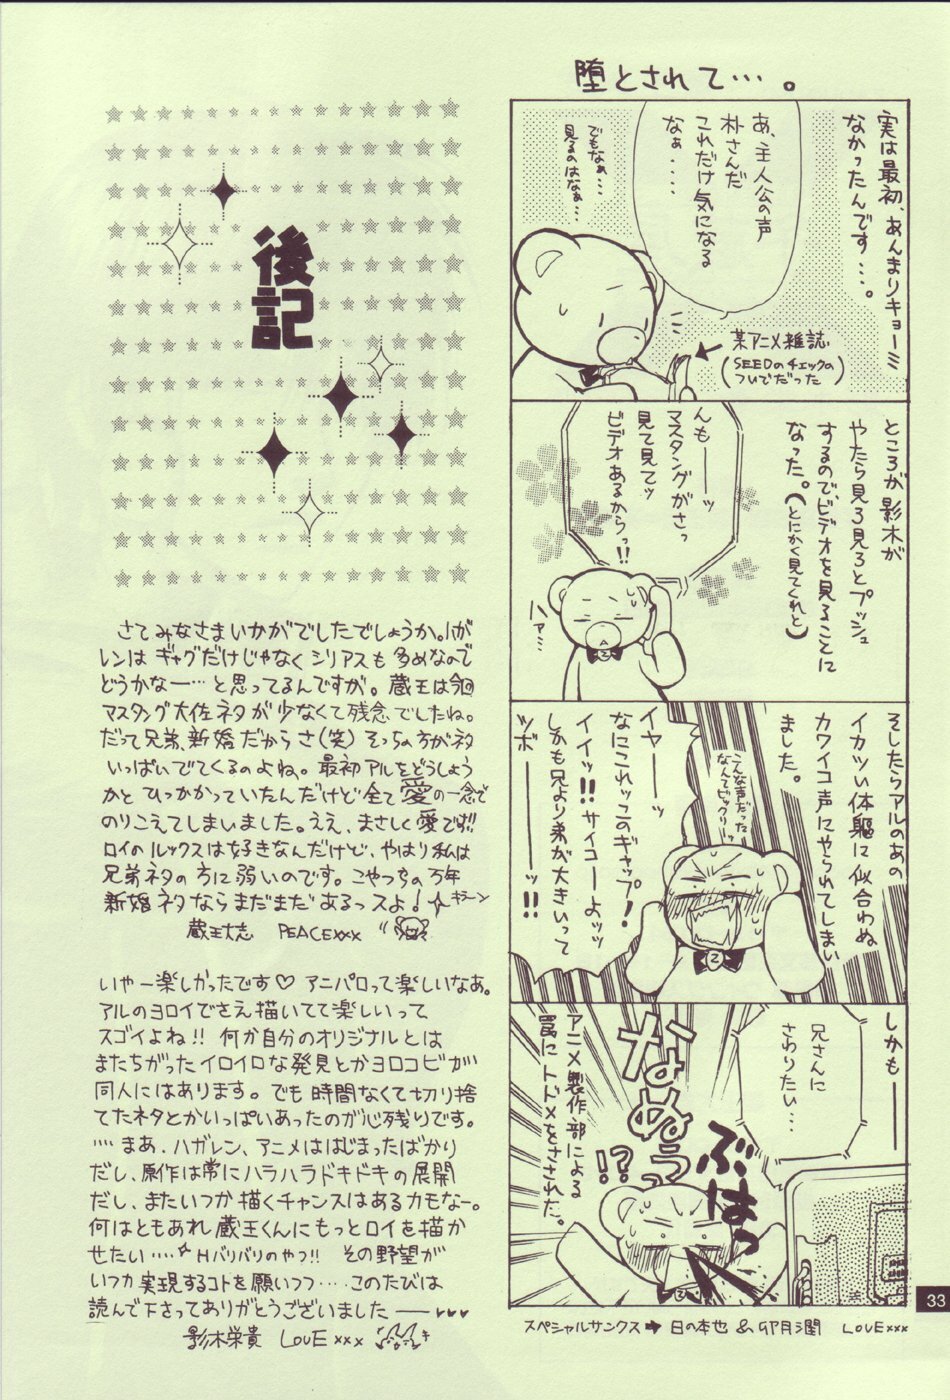 堕とされて…。
実は最初、あんまりキョーミ
なかったんです…。
あ、主人公の声
朴さんだ
これだけ気になる
なぁ….
でもなぁ…
見るのはなぁ…
某アニメ雑誌
(SEEDのチェックの
ついでだった)
ところが影木が
やたら見ろ見ろとプッシュ
するので、ビデオを見ることに
なった。(とにかく見てくれと)
んも――ッ
マスタングがさっ
見て見てッ
ビデオあるからっ!!
ハァ…
そしたらアルのあの
イカツい体軀に似合わぬ
カワイイ声にやられてしまい
ました。
こんな声だった
なんてビックリーッ
イヤ――ッ
なにこれッこのギャップ!
イイッ!!サイコーよッッ
しかも兄より弟が大きいって
ツボ――ッ!!
しかも――
兄さんに
さわりたい…
なぬうっ!?
ぶはっ
アニメ製作部による
罠にトドメをさされた。
スペシャルサンクス➡日の本也 & 卯月潤 LOVExxx
33
後記
さてみなさまいかがでしたでしょうか。ハガ
レンは ギャグだけじゃなくシリアスも多めなので
どうかなー…と思ってるんですが。蔵王は今回
マスタング大佐ネタが少なくて残念でしたね。
だって兄弟、新婚だからさ(笑) そっちの方がネタ
いっぱいでてくるのよね。最初アルをどうしょう
かと ひっかかっていたんだけど全て愛の一念で
のりこえてしまいました。ええ、まさしく愛です!!
ロイのルックスは好きなんだけど、やはり私は
兄弟ネタの方に弱いのです。こやつらの万年
新婚ネタならまだまだあるっスよ! キラーン
蔵王大志 PEACExxx
いやー楽しかったです♡ アニパロって楽しいなあ。
アルのヨロイでさえ描いてて楽しいって
スゴイよね!! 何か自分のオリジナルとは
またちがったイロイロな発見とかヨロコビが
同人にはあります。でも時間なくて切り捨
てたネタとかいっぱいあったのが心残りです。
….まあ、ハガレン、アニメははじまったばかり
だし、原作は常にハラハラドキドキの展開
だし、またいつか描くチャンスはあるカモなー。
何はともあれ蔵王くんにもっとロイを描か
せたい….☆Hバリバリのやつ!! その野望が
いつか実現するコトを願いつつ….このたびは
読んで下さってありがとうございました――♥♥♥
影木栄貴 LOVExxx